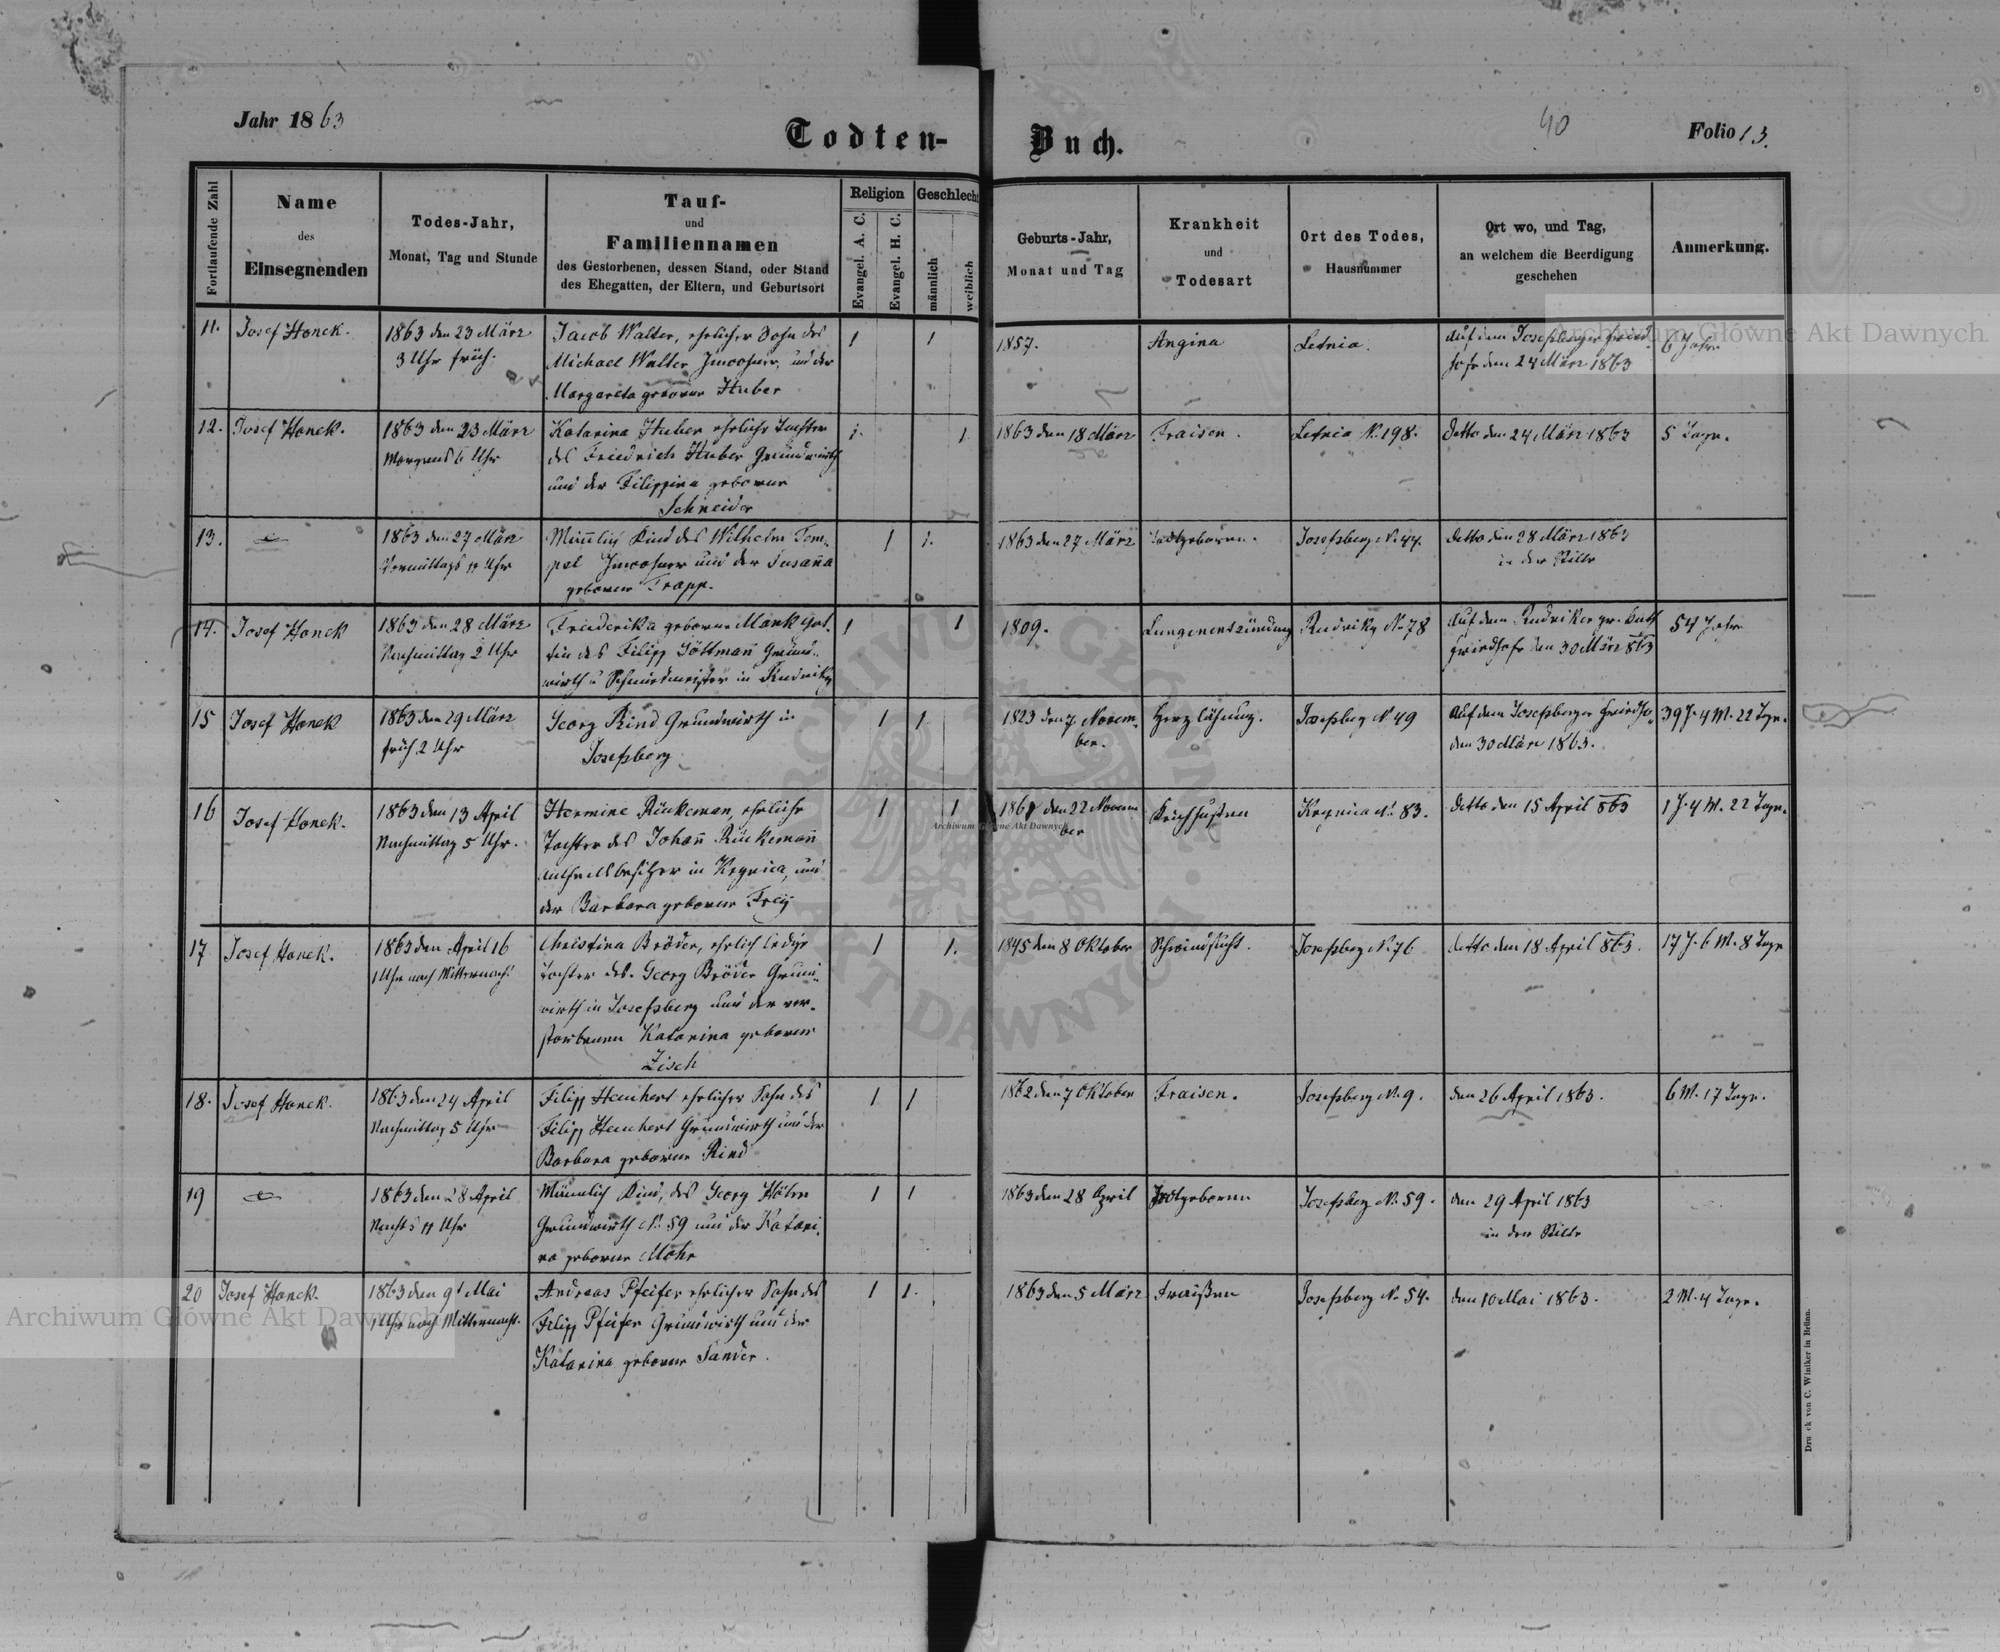 Jahr 1863
Todten-Buch.
40
Folio 13.
Fortlaufende Zahl
Name
des
Einsegnenden
Todes-Jahr,
Monat, Tag und Stunde
Tauf-
und
Familiennamen
des Gestorbenen, dessen Stand, oder Stand
des Ehegatten, der Eltern, und Geburtsort
Religion
Evangel. A. C.
Evangel. H. C.
Geschlecht
männlich
weiblich
Geburts-Jahr,
Monat und Tag
Krankheit
und
Todesart
Ort des Todes,
Hausnummer
Ort wo, und Tag,
an welchem die Beerdigung
geschehen
Anmerkung.
11.
Josef Honek.
1863 den 23 März
3 Uhr früh.
Jacob Walter, ehelicher Sohn des
Michael Walter Inwohner, und der
Margareta geborne Huber
1
1
1857.
Angina
Letnia.
Auf dem Josefsberger Fried-
hofe den 24 März 1863
6 Jahre
12.
Josef Honek.
1863 den 23 März
Morgens 6 Uhr
Katarina Huber eheliche Tochter
des Friedrich Huber Grundwirth
und der Filippina geborne
Schneider
1.
1.
1863 den 18 März
Fraisen.
Letnia N. 198.
detto den 24 März 1863
5 Tage.
13.
1863 den 27 März
Vormittags 11 Uhr
Männlich Kind des Wilhelm Tom-
pel Inwohner und der Susanna
geborne Trapp.
1
1.
1863 den 27 März
Todtgeboren.
Josefsberg N. 44.
detto den 28 März 1863
in der Stille
14.
Josef Honek
1863 den 28 März
Nachmittag 2 Uhr
Friederika geborne Mank Gat-
tin des Filipp Göttman Grund-
wirth u Schmiedmeister in Rudniky
1
1
1809.
Lungenentzündung
Rudniky N. 78
Auf dem Rudniker gr. kath
Friedhofe den 30 März 863
54 Jahre
15
Josef Honek
1863 den 29 März
früh 2 Uhr
Georg Rind Grundwirth in
Josefsberg.
1
1.
1823 den 7 Novem-
ber.
Herzlähmung.
Josefsberg N. 49
Auf dem Josefsberger Friedho-
den 30 März 1863.
39 J. 4 M. 22 Tage.
16
Josef Honek.
1863 den 13 April
Nachmittag 5 Uhr.
Hermine Rückeman, eheliche
Tochter des Johann Rückemann
Antheilsbesitzer in Krynica, und
der Barbara geborne Frey
1
1
1861 den 22 Novem
ber
Keichhusten
Krynica N. 83.
detto den 15 April 863
1 J. 4 M. 22 Tage.
17
Josef Honek.
1863 den April 16
1 Uhr nach Mitternach.
Christina Bröder, ehelich ledige
Tochter des Georg Bröder Grund-
wirth in Josefsberg und der ver-
storbenen Katarina geborne
Zisch
1
1.
1845 den 8 Oktober
Schwindsucht.
Josefsberg N. 76
detto den 18 April 863.
17 J. 6 M. 8 Tage
18.
Josef Honek.
1863 den 24 April
Nachmittag 5 Uhr
Filipp Heuchert ehelicher Sohn des
Filipp Heuchert Grundwirth und der
Barbara geborne Rind
1
1
1862 den 7 Oktober
Fraisen.
Josefsberg N. 9.
den 26 April 1863.
6 M. 17 Tage.
19
1863 den 28 April
Nachts 11 Uhr
Männlich Kind, des Georg Höhn
Grundwirth N. 59 und der Katari-
na geborne Mohr
1
1
1863 den 28 April
Todtgeboren
Josefsberg N. 59.
den 29 April 1863
in der Stille
20
Josef Honek.
1863 den 9t Mai
1 Uhr nach Mitternacht.
Andreas Pfeifer ehelicher Sohn des
Filipp Pfeifer Grundwirth und der
Katarina geborne Sander.
1
1.
1863 den 5 März
Fraißen
Josefsberg N. 54.
den 10 Mai 1863.
2 M. 4 Tage.
Druck von C. Winiker in Brünn.
Archiwum Główne Akt Dawnych
Archiwum Główne Akt Dawnych
Archiwum Główne Akt Dawnych
ARCHIWUM GŁÓWNE AKT DAWNYCH